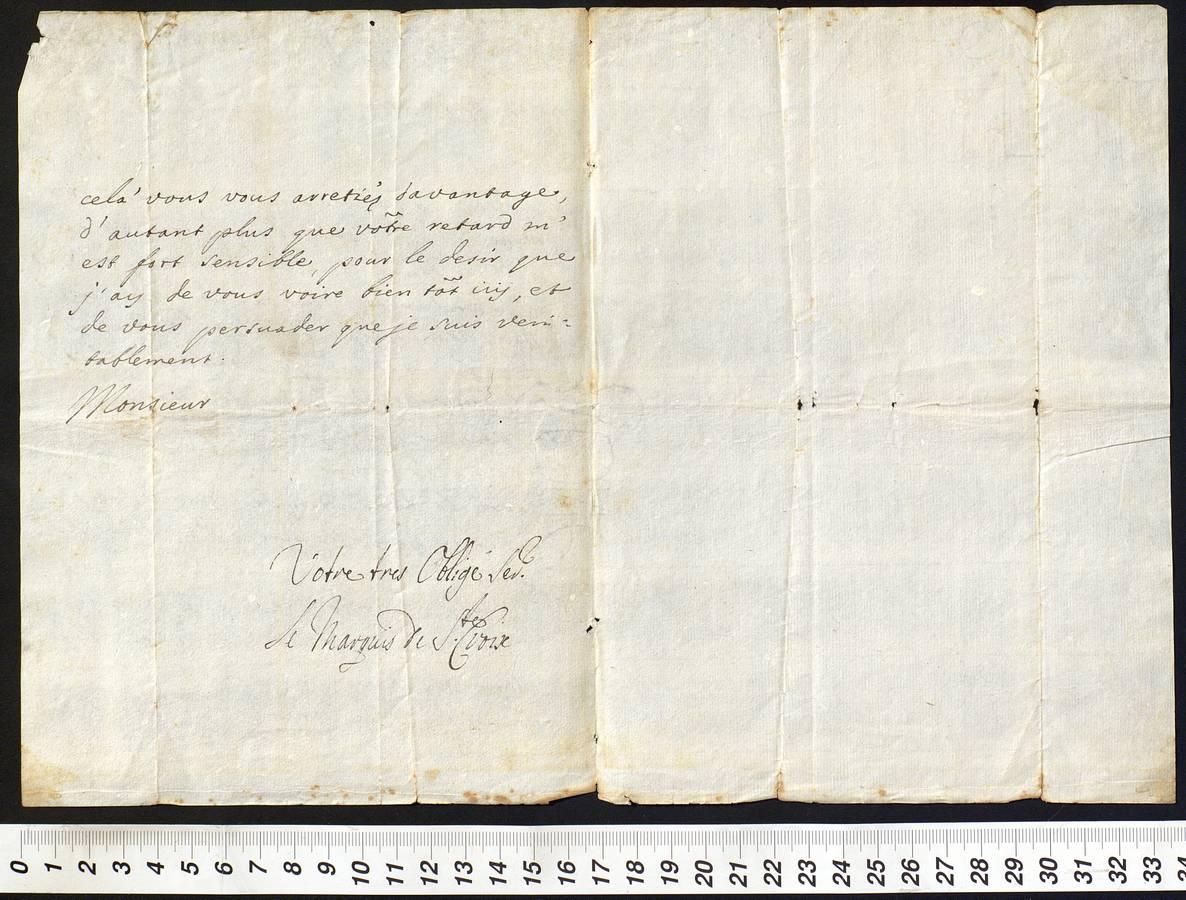 celà vous vous arretiéz davantage,
d'autant plus que vôtre retard m'
est fort sensible, pour le desir que
j'ay de vous voire bien tôt icij, et
de vous persuader que je suis veri=
tablement.
Monsieur
Votre tres Obligé Ser.r
le Marquis de S.te Croix
0 1 2 3 4 5 6 7 8 9 10 11 12 13 14 15 16 17 18 19 20 21 22 23 24 25 26 27 28 29 30 31 32 33 34